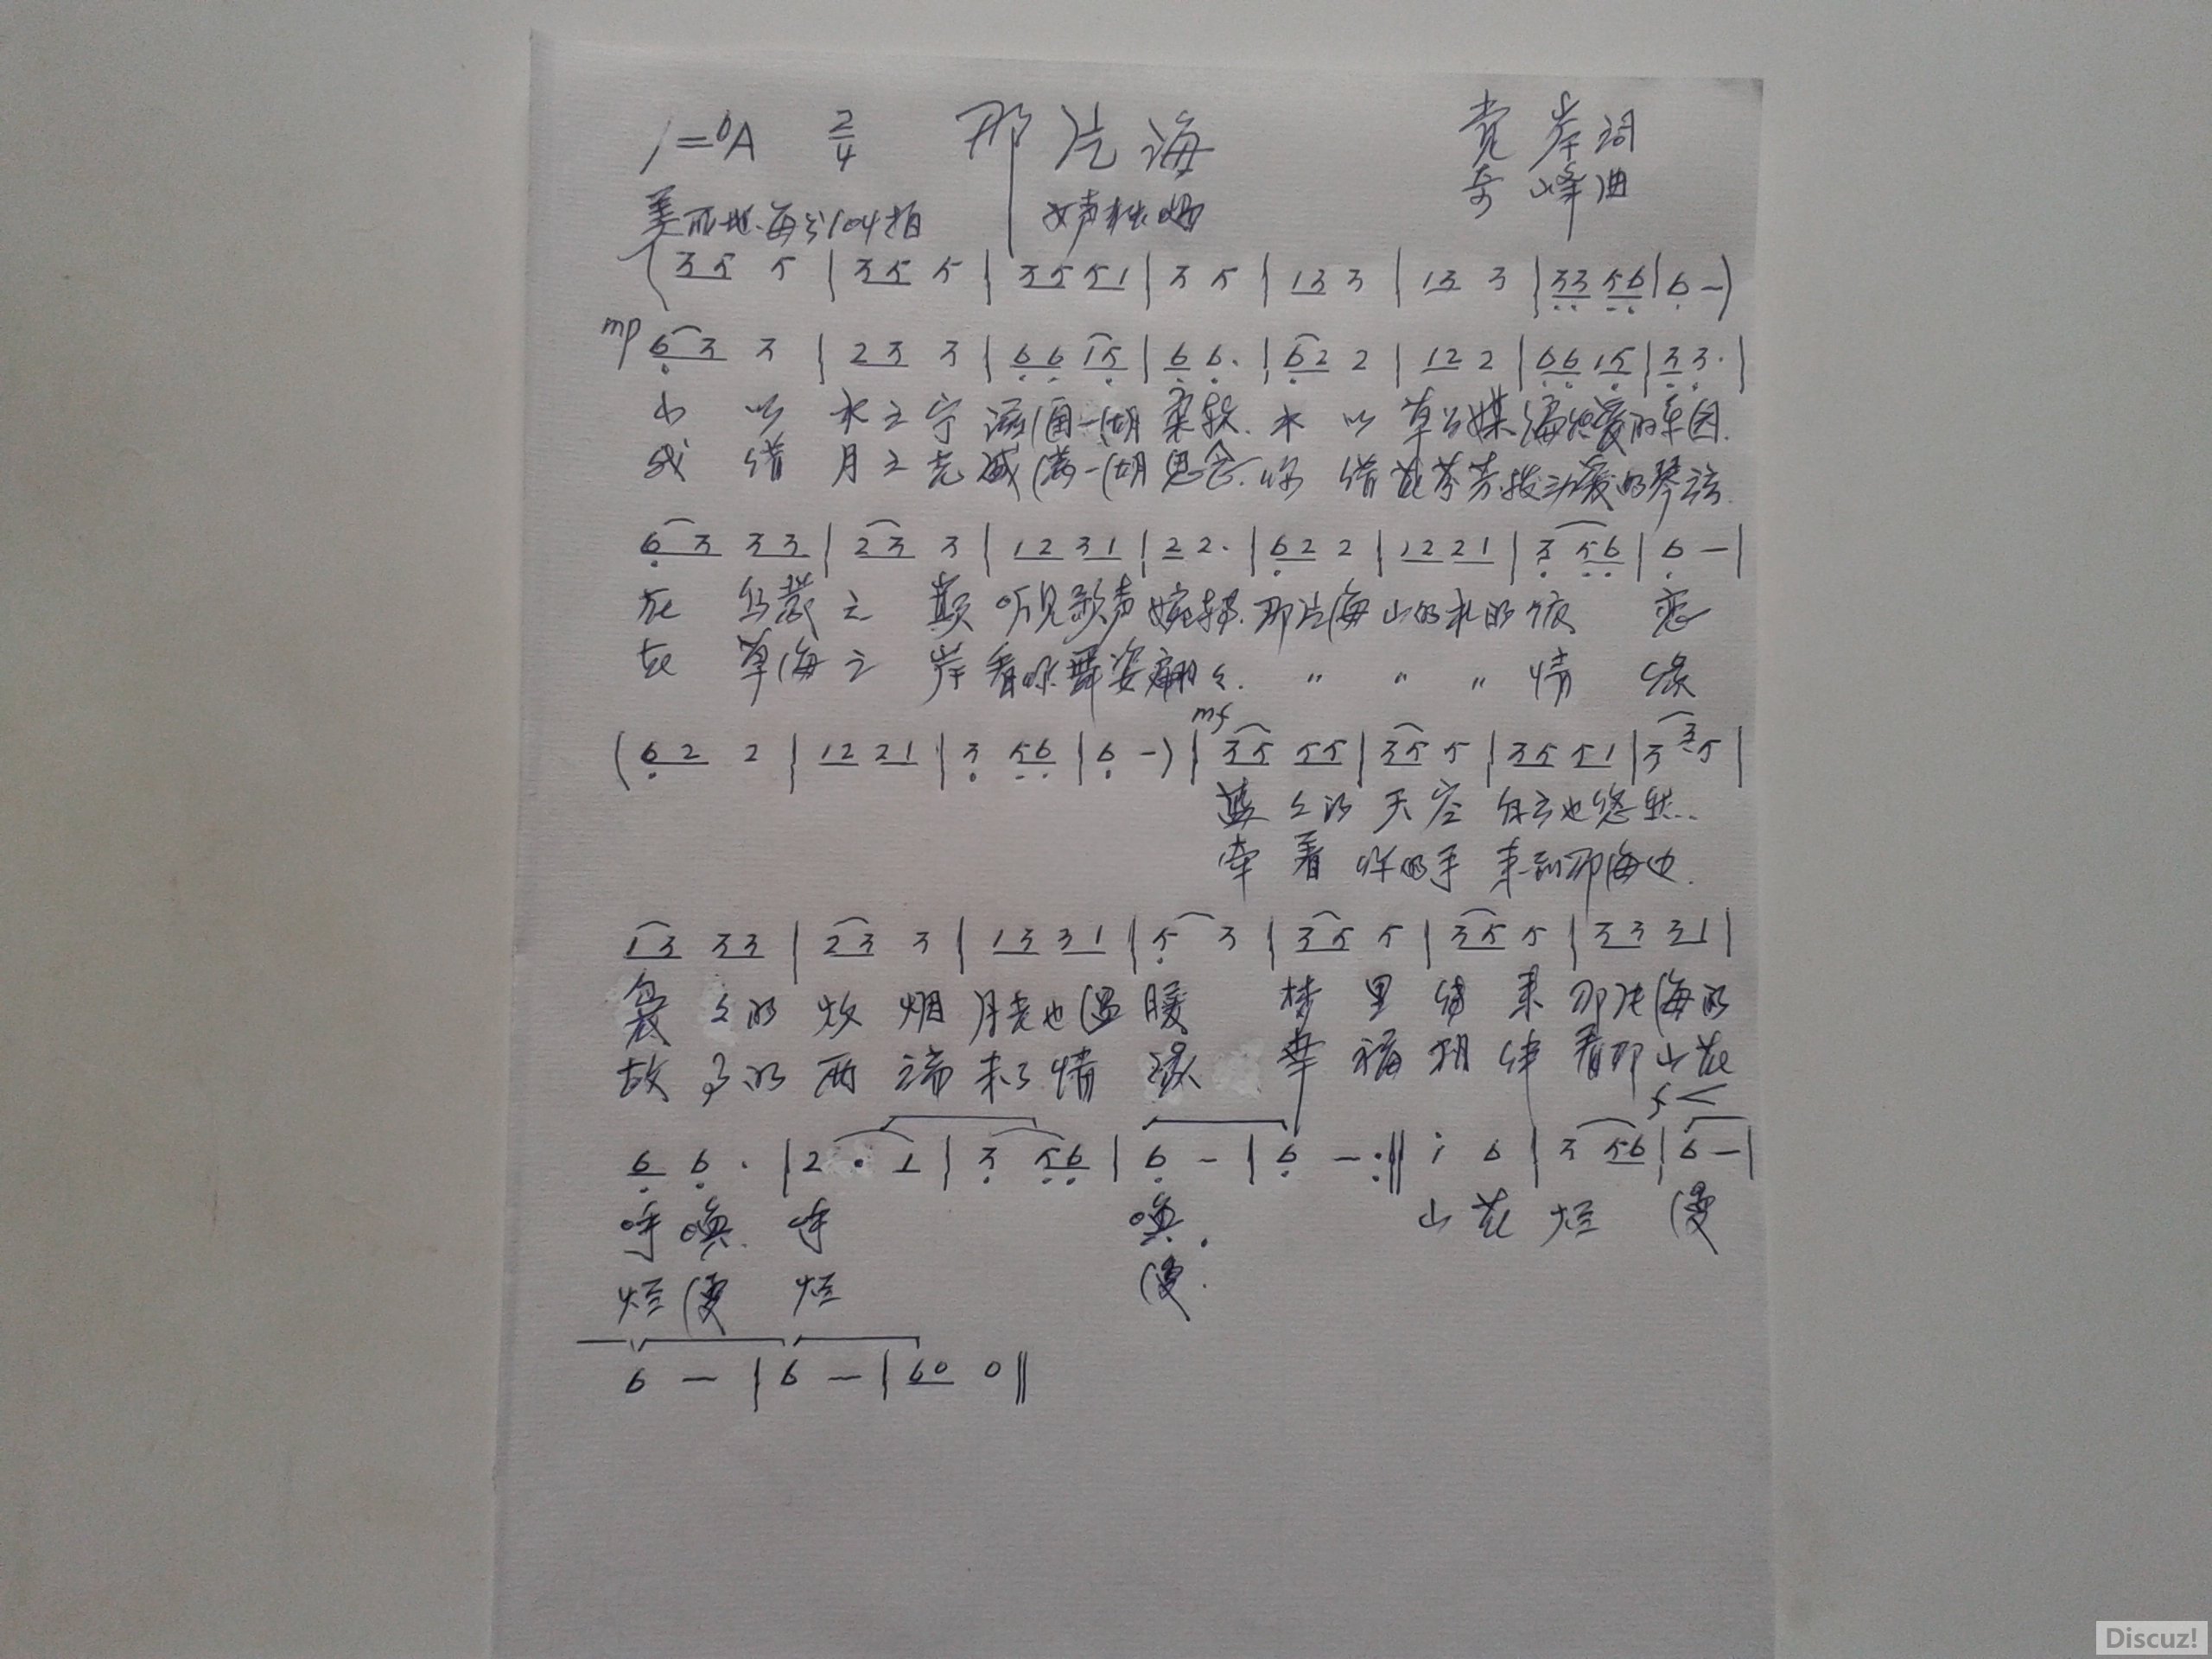 1=♭A 2/4 那片海 岸词
奇峰曲
美丽地.每分104拍 女声独唱
( 3 5 5 | 3 5 5 | 3 5 5 1 | 3 5 | 1 3 3 | 1 3 3 | 3 3 5 6 | 6 — )
mp 6 3 3 | 2 3 3 | 6 6 1 5 | 6 6. | 6 2 2 | 1 2 2 | 6 6 1 5 | 3 3. |
山 以 水之宁 滋润一湖柔软. 水 以 草为媒 爱的草园.
我 借 月之光 盛满一湖思念. 你 借花芬芳拨动爱的琴弦.
6 3 3 3 | 2 3 3 | 1 2 3 1 | 2 2. | 6 2 2 | 1 2 2 1 | 3 5 6 | 6 — |
在 乌蒙之 巅 听见歌声婉转. 那片海 山的水的依 恋
在 草海之 岸 看你舞姿翩々. 〃 〃 〃 情 缘
( 6 2 2 | 1 2 2 1 | 3 5 6 | 6 — ) | mf 3 5 5 5 | 3 5 5 | 3 5 5 1 | 3 3 5 |
蓝々的 天空 白云也悠然..
牵着 你的手 来到那海边.
1 3 3 3 | 2 3 3 | 1 3 3 1 | 5 3 | 3 5 5 | 3 5 5 | 3 3 3 1 |
袅々的 炊烟 月光也温暖 梦里 传来 那片海的
故事的 两端 未了情缘 幸福 相伴 看那山花
f <
6 6. | 2 . 1 | 3 5 6 | 6 — | 6 — :‖ i 6 | 3 5 6 | 6 — |
呼唤. 呼 唤. 山花烂 漫
烂漫 烂 漫.
6 — | 6 — | 6 0 0 ‖
Discuz!